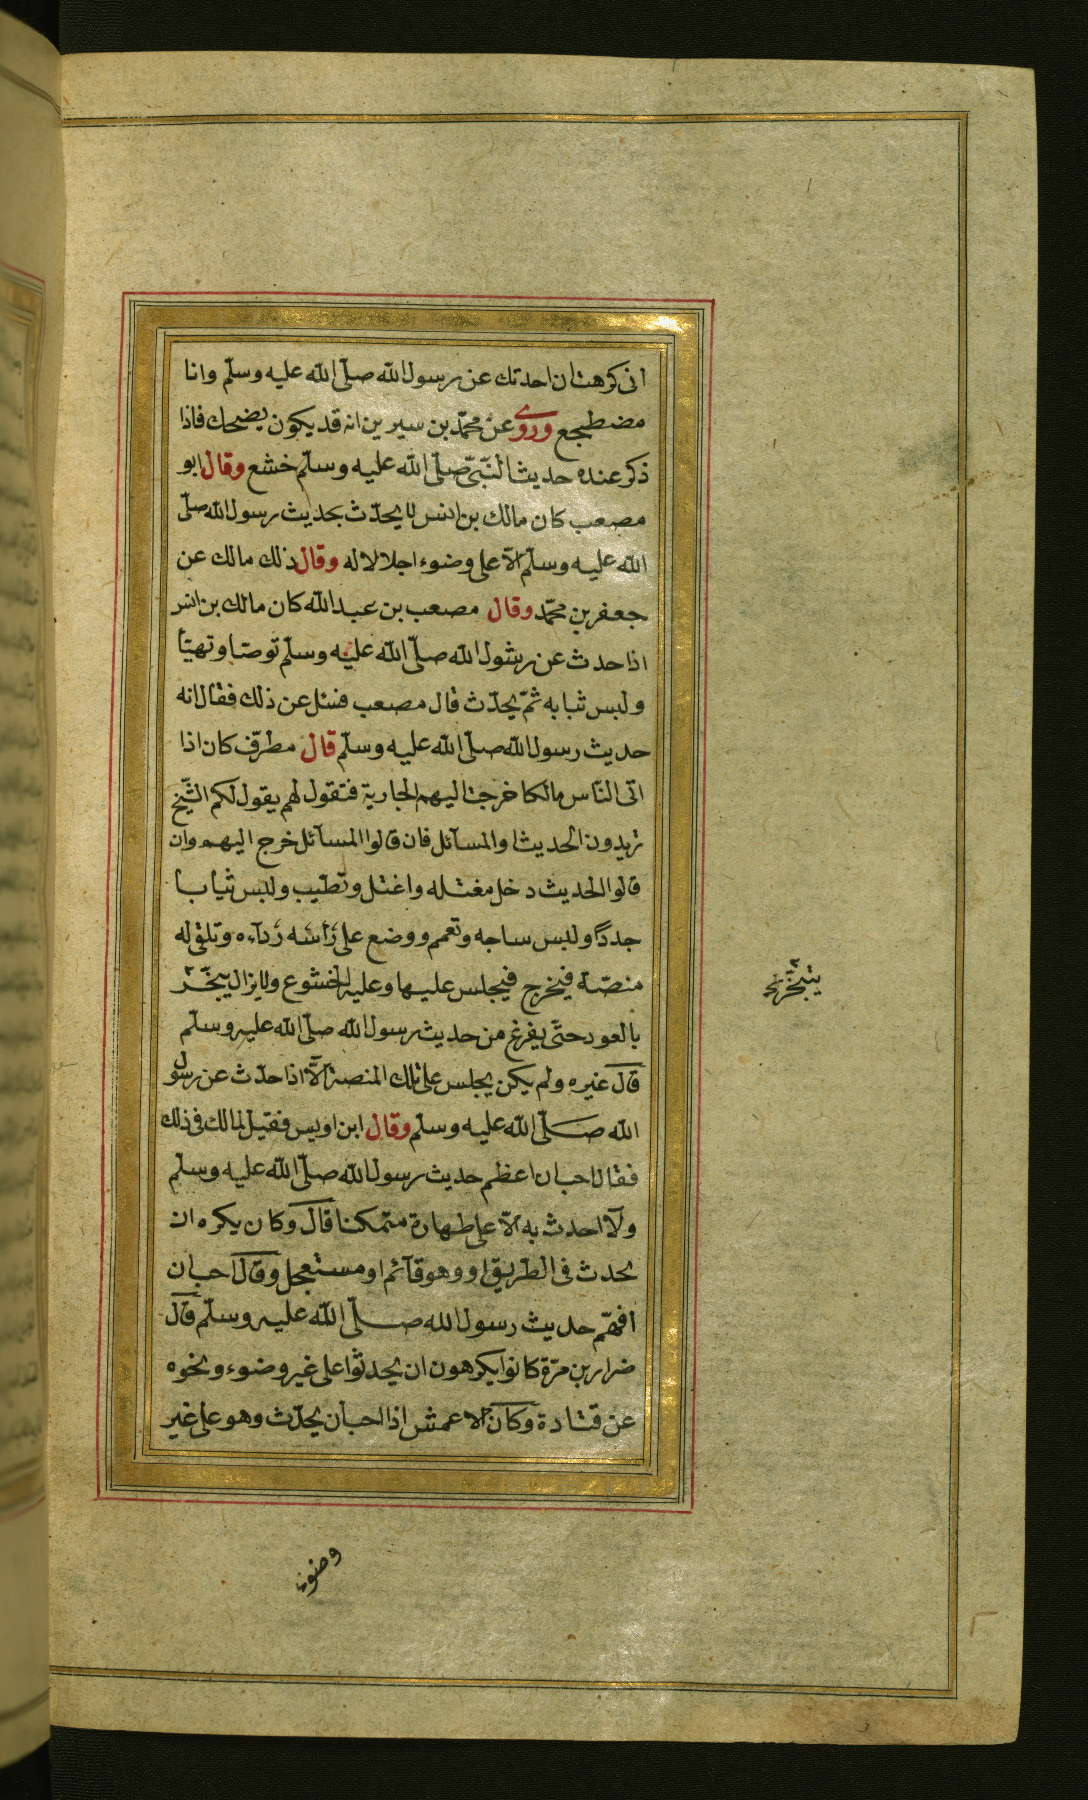 انى كرهت ان احدثك عن رسول الله صلّى الله عليه وسلّم وانا
مضطجع وروى عن محمّد بن سيرين انه قد يكون يضحك فاذا
ذكر عنده حديث النّبىّ صلّى الله عليه وسلّم خشع وقال ابو
مصعب كان مالك بن انس لا يحدّث بحديث رسول الله صلّى
الله عليه وسلّم الّا على وضوء اجلالا له وقال ذلك مالك عن
جعفر بن محمّد وقال مصعب بن عبد الله كان مالك بن انس
اذا حدث عن رسول الله صلّى الله عليه وسلّم توضا وتهيّأ
ولبس ثيابه ثمّ يحدّث قال مصعب فسئل عن ذلك فقال انه
حديث رسول الله صلّى الله عليه وسلّم قال مطرّف كان اذا
اتى النّاس مالكا خرجت اليهم الجارية فتقول لهم يقول لكم الشّيخ
تريدون الحديث او المسآئل فان قالوا المسآئل خرج اليهم وان
قالوا الحديث دخل مغتسله واغتسل وتطيّب ولبس ثيابا
جددًا ولبس ساجه وتعمم ووضع على رأسه ردآءه وتلقى له
منصّة فيخرج فيجلس عليها وعليه الخشوع ولا يزال يبخّر
بالعود حتّى يفرغ من حديث رسول الله صلّى الله عليه وسلّم
قال غيره ولم يكن يجلس على تلك المنصة الّا اذا حدّث عن رسول
الله صلّى الله عليه وسلّم وقال ابن اويس فقيل لمالك فى ذلك
فقال احب ان اعظم حديث رسول الله صلّى الله عليه وسلّم
ولآ احدث به الّا على طهارة متمكنا قال وكان يكره ان
يحدث فى الطّريق او وهو قآئم او مستعجل وقال احب ان
افهّم حديث رسول الله صلّى الله عليه وسلّم قال
ضرار بن مرّة كانوا يكرهون ان يحدثوا على غير وضوء ونحوه
عن قتادة وكان الاعمش اذا احب ان يحدّث وهو على غير
يتبخّر
وضوء